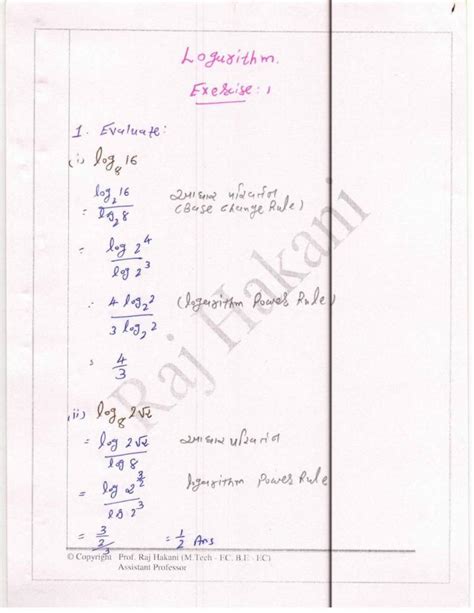 1
Logarithm.
Exercise: 1
1. Evaluate:
(i) log₈16
= log₂16 / log₂8 આધાર પરિવર્તન
(Base Change Rule)
= log 2⁴ / log 2³
∴ 4 log₂2 / 3 log₂2 (logarithm Power Rule)
= 4/3
(ii) log₈2√2
= log 2√2 / log 8 આધાર પરિવર્તન
= log 2^(3/2) / log 2³ logarithm Power Rule
= (3/2) / 3 = 1/2 Ans
© Copyright Prof. Raj Hakani (M.Tech - EC, B.E - EC)
Assistant Professor
Raj Hakani